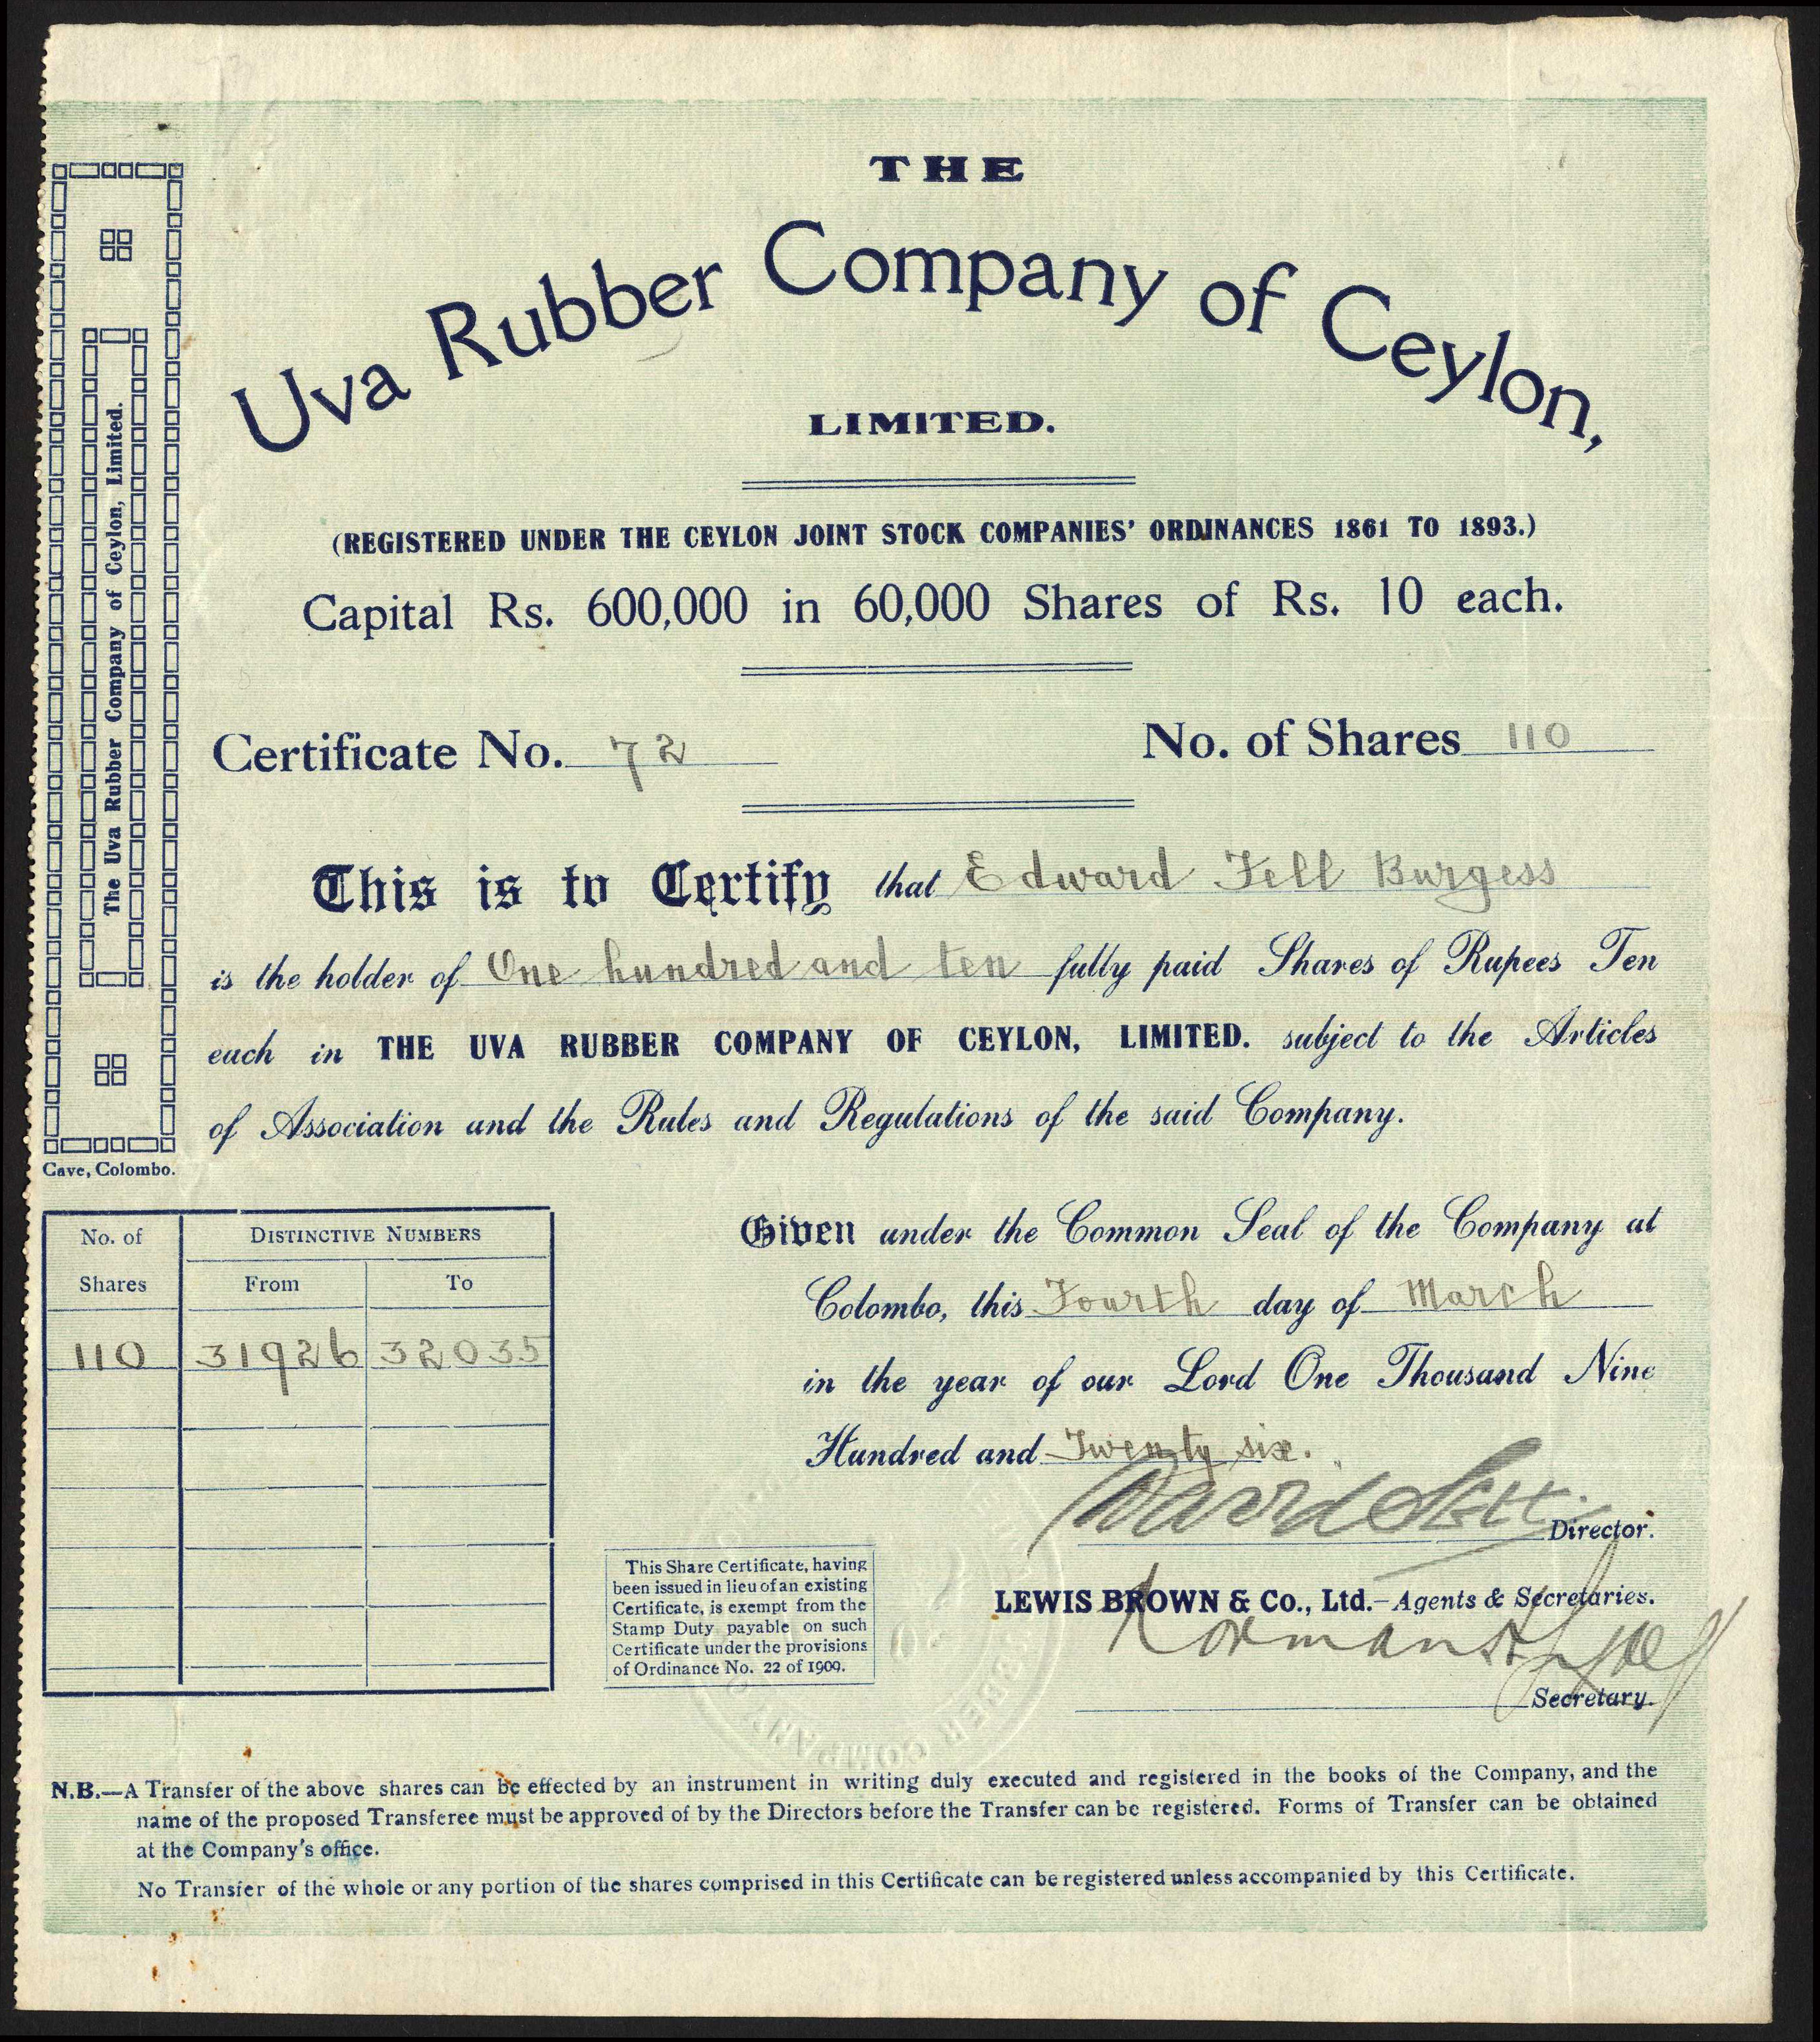 THE
Uva Rubber Company of Ceylon,
LIMITED.
(REGISTERED UNDER THE CEYLON JOINT STOCK COMPANIES' ORDINANCES 1861 TO 1893.)
Capital Rs. 600,000 in 60,000 Shares of Rs. 10 each.
Certificate No. 72
No. of Shares 110
This is to Certify that Edward Fell Burgess
is the holder of One hundred and ten fully paid Shares of Rupees Ten
each in THE UVA RUBBER COMPANY OF CEYLON, LIMITED. subject to the Articles
of Association and the Rules and Regulations of the said Company.
The Uva Rubber Company of Ceylon, Limited.
Cave, Colombo.
No. of Shares
DISTINCTIVE NUMBERS
From To
110 31926 32035
Given under the Common Seal of the Company at
Colombo, this Fourth day of March
in the year of our Lord One Thousand Nine
Hundred and Twenty six.
David
Director.
LEWIS BROWN & Co., Ltd.—Agents & Secretaries.
Secretary.
This Share Certificate, having
been issued in lieu of an existing
Certificate, is exempt from the
Stamp Duty payable on such
Certificate under the provisions
of Ordinance No. 22 of 1909.
RUBBER COMPANY O
N.B.—A Transfer of the above shares can be effected by an instrument in writing duly executed and registered in the books of the Company, and the
name of the proposed Transferee must be approved of by the Directors before the Transfer can be registered. Forms of Transfer can be obtained
at the Company's office.
No Transfer of the whole or any portion of the shares comprised in this Certificate can be registered unless accompanied by this Certificate.